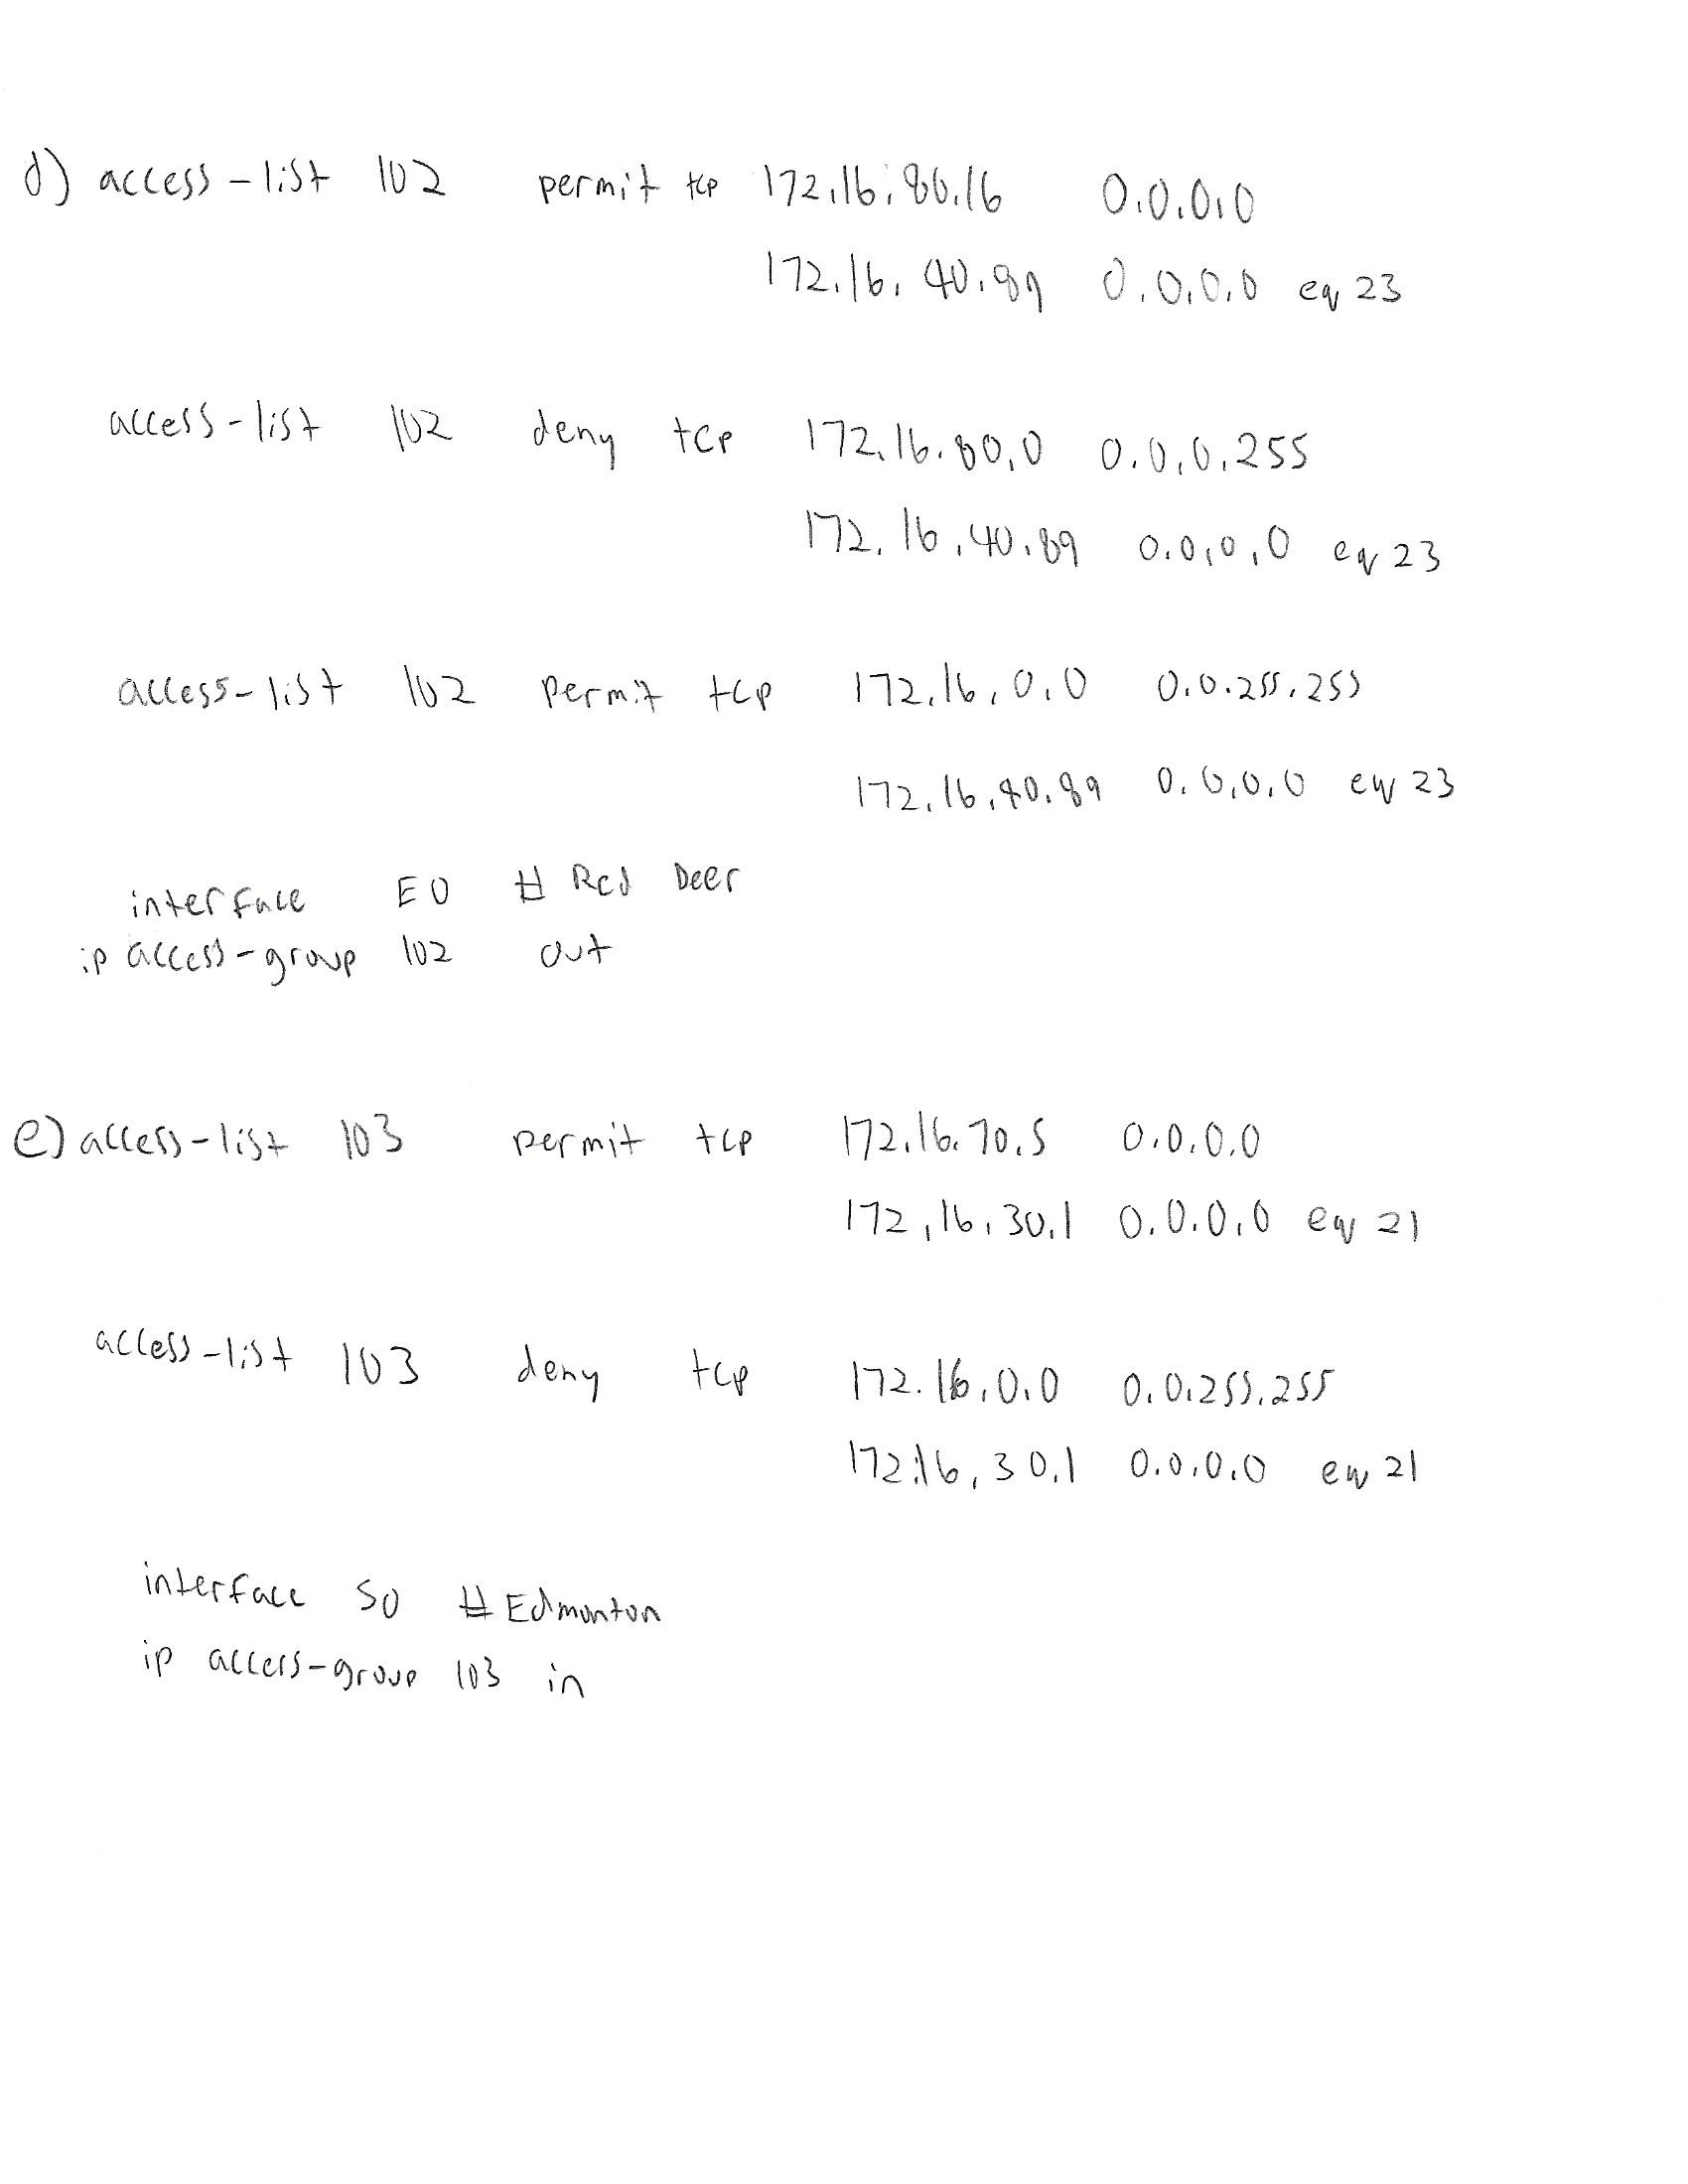 d) access-list 102 permit tcp 172.16.80.16 0.0.0.0
172.16.40.89 0.0.0.0 eq 23
access-list 102 deny tcp 172.16.80.0 0.0.0.255
172.16.40.89 0.0.0.0 eq 23
access-list 102 permit tcp 172.16.0.0 0.0.255.255
172.16.40.89 0.0.0.0 eq 23
interface E0 # Red Deer
ip access-group 102 out
e) access-list 103 permit tcp 172.16.70.5 0.0.0.0
172.16.30.1 0.0.0.0 eq 21
access-list 103 deny tcp 172.16.0.0 0.0.255.255
172.16.30.1 0.0.0.0 eq 21
interface S0 # Edmonton
ip access-group 103 in